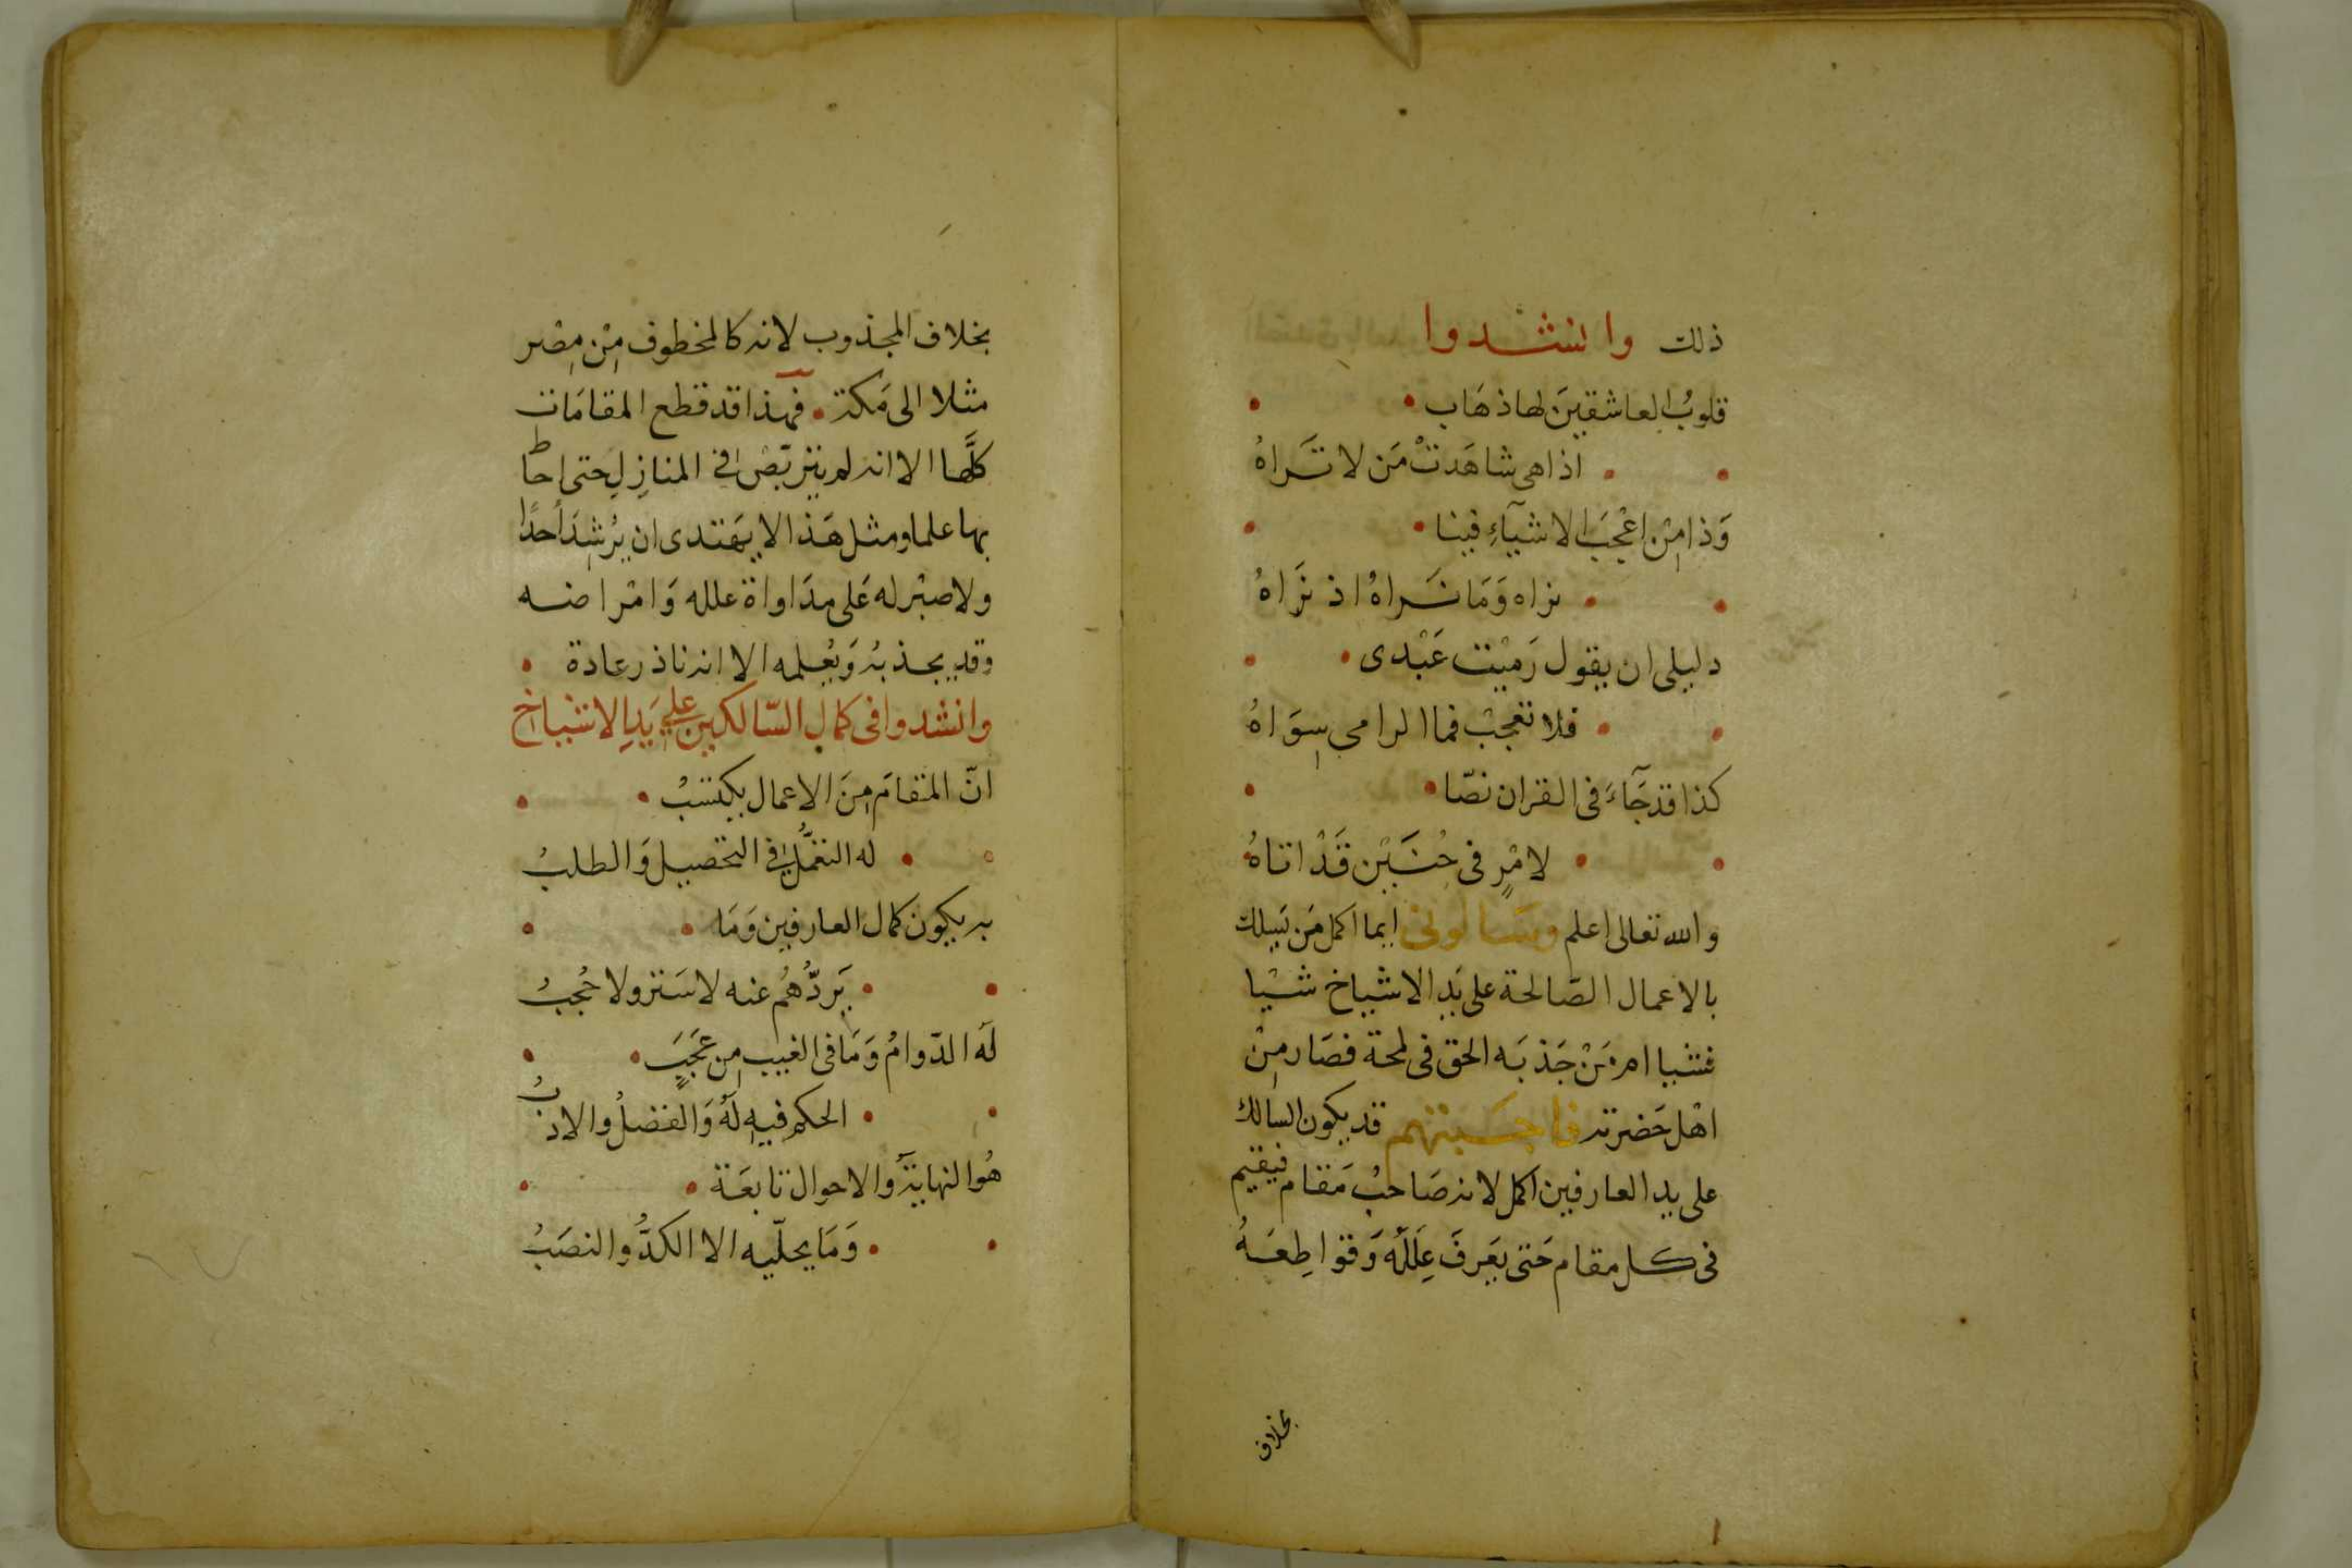 ذلك وانشدوا
قلوبُ العاشقينَ لها ذهَاب
اذا هى شاهَدتْ مَن لا تَراهُ
وَذا مِنْ اعْجَبَ الاشيآءِ فينا
نراه وَمَا نَراهُ اذ نَرَاهُ
دليلى ان يقول رَميْت عَبْدى
فلا تعجبْ فما الرامى سِوَاهُ
كذا قد جَآءَ فى القران نصّا
لامْرٍ فى حُنَيْن قَدْ اتاهُ
والله تعالى اعلم وسَالونى ايما اكمل مَن يَسلك
بالاعمال الصّالحة على يَدِ الاشياخ شيْا
فشيا ام مَنْ جَذبَه الحق فى لمحة فصَار مِنْ
اهْل حَضرته فاجَبتهم قد يكون السالك
على يد العارفين اكمل لانه صَاحبُ مَقام فيقيم
فى كل مقام حَتى يَعرفَ عِلَلَهُ وَقواطِعَهُ
بخلاف
بخلاف المجذوب لانه كالمخطوف مِنْ مِصْر
مثلا الى مَكة فهذا قد قطع المقامَات
كلَّها الا انه لم يتربّصْ فى المنازِلِ حتى احاط
بها علما ومثل هَذا لا يهَتدى ان يُرْشِدَ احدًا
ولا صبْر له عَلى مِدَاواة علله وَامْراضه
وقد يجذبُه وَيُعلمه الا انه نادر عادة
وانشدوا فى كمال السّالكين على يَدِ الاشياخ
انّ المقامَ مِنَ الاعمال يكتسبُ
له التعمُّل فى التحصيل وَالطلبُ
به يكون كمال العارفين وَمَا
يَردُّهُم عنه لا سَتر ولا حُجبُ
لَه الدّوامُ وَمَا فى الغيب مِن عَجَبٍ
الحكم فيهِ لَهُ وَالفضلُ والادبُ
هُو النهايَةُ والاحوال تابعَة
وَمَا يحلّيه الا الكدُّ والنصَبُ